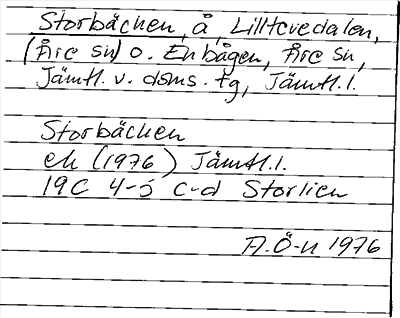 Storbäcken, å, Lilltevedalen,
(Åre sn) o. Enbågen, Åre sn,
Jämtl. v. doms. tg, Jämtl. l.
Storbäcken
ek (1976) Jämtl. l.
19C 4-5 c-d Storlien
A.Ö-n 1976